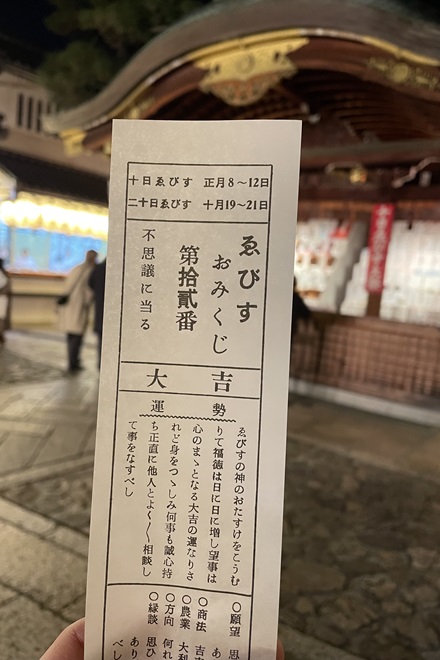 十日ゑびす 正月8〜12日
二十日ゑびす 十月19〜21日
ゑびす
おみくじ
第拾貳番
不思議に当る
大吉
運勢
ゑびすの神のおたすけをこうむ
りて福徳は日に日に増し望事は
心のまゝとなる大吉の運なりさ
れど身をつゝしみ何事も誠心持
ち正直に他人とよく〳〵相談し
て事をなすべし
〇願望 思
あ
〇商法 吉
〇農業 大利
〇方向 何れ
〇縁談 思ひ
あり
べし